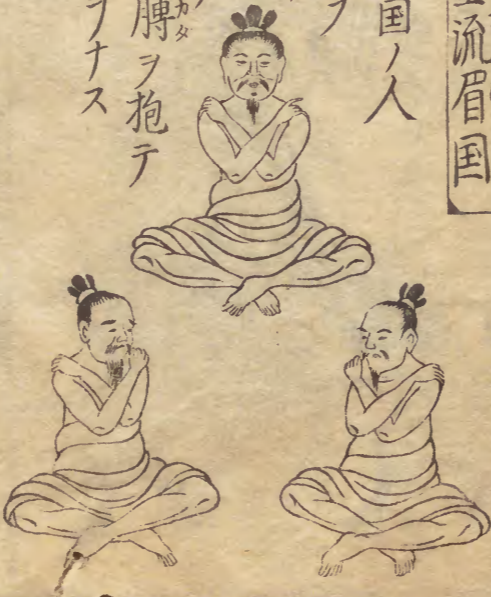 流眉国
国ノ人
膊カタヲ抱テ
ヲナス